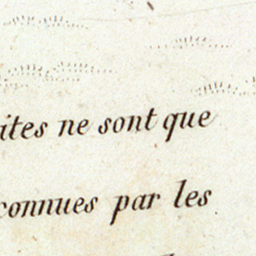 ites ne sont que
connues par les